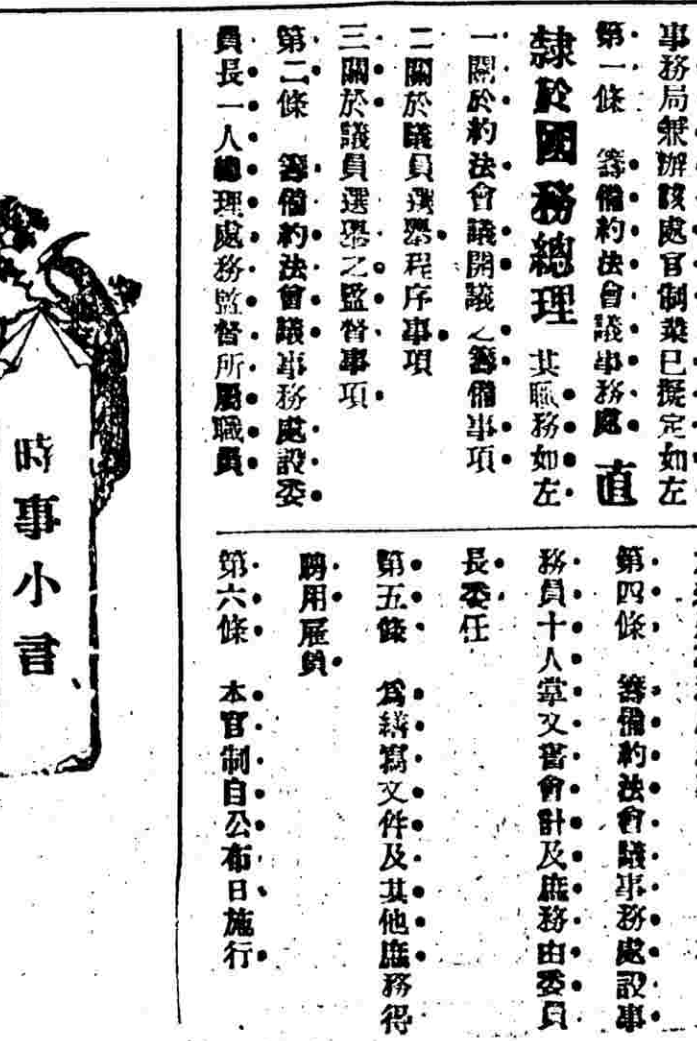 事務局兼辦該處官制業已擬定如左
第一條　籌備約法會議事務處直
隸於國務總理其職務如左
一關於約法會議開議之籌備事項
二關於議員選舉程序事項
三關於議員選舉之監督事項
第二條　籌備約法會議事務處設委
員長一人總理處務監督所屬職員
第四條　籌備約法會議事務處設事
務員十人掌文書會計及庶務由委員
長委任
第五條　爲繕寫文件及其他庶務得
聘用雇員
第六條　本官制自公布日施行
時事小言